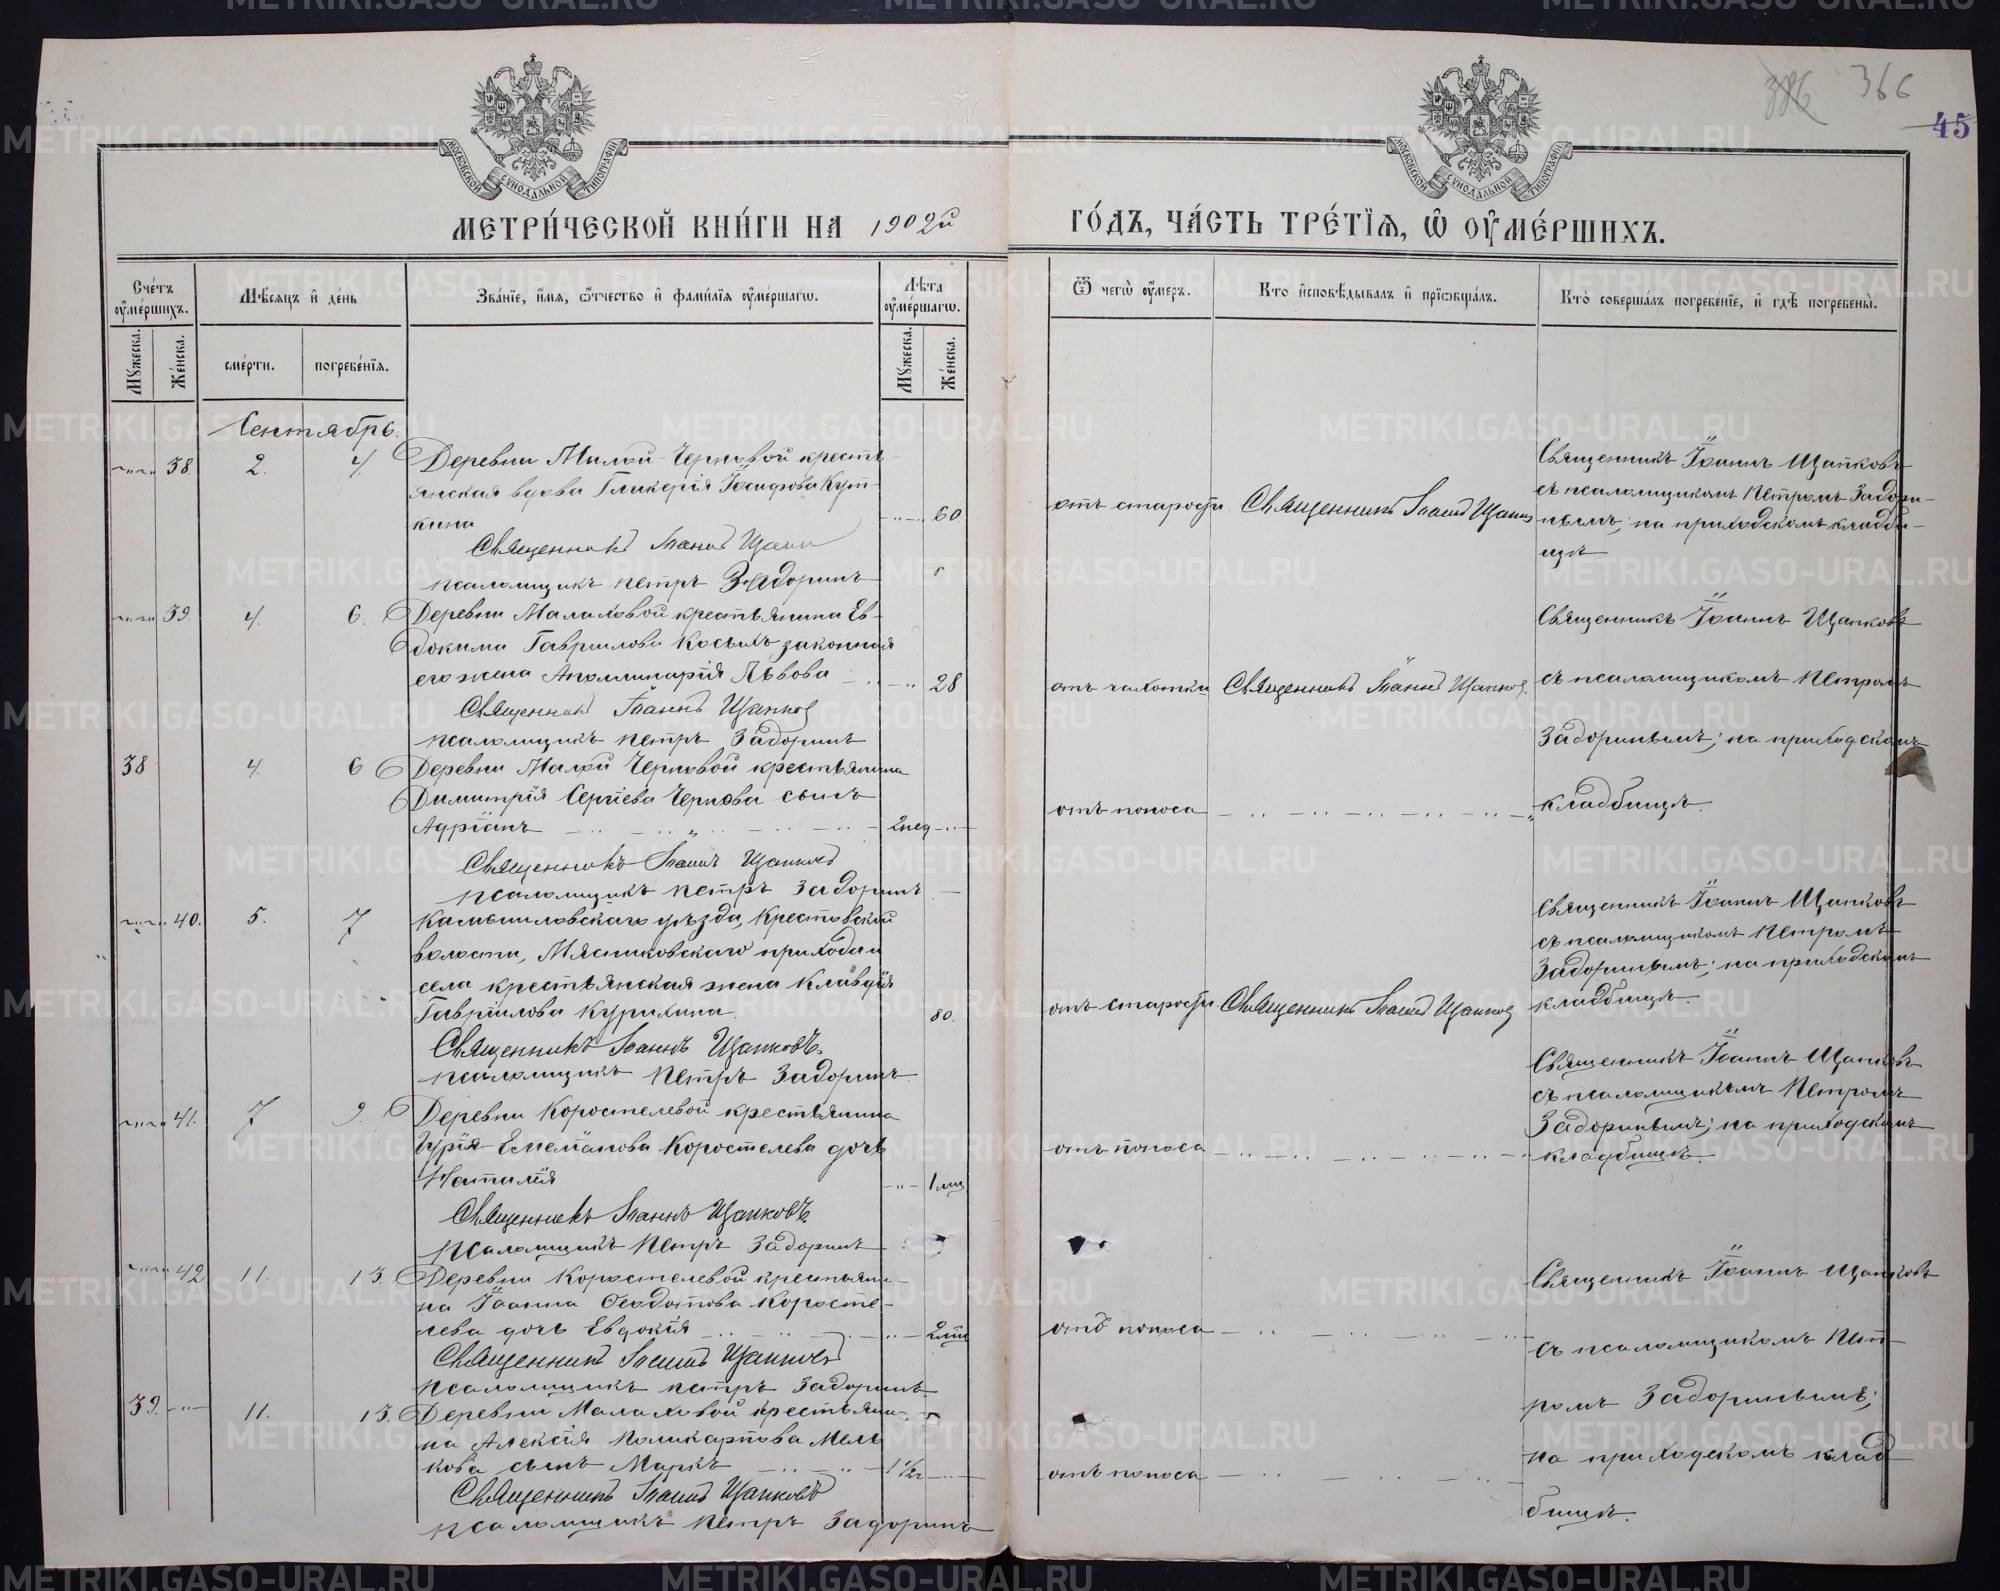 366
45
МОСКОВСКОЙ СѴНОДАЛЬНОЙ ТИПОГРАФІИ
МОСКОВСКОЙ СѴНОДАЛЬНОЙ ТИПОГРАФІИ
МЕТРИ́ЧЕСКОЙ КНИ́ГИ НА 1902й ГО́ДЪ, ЧА́СТЬ ТРЕ́ТІѦ, Ѡ ОУ҆МЕ́РШИХЪ.
Сче́тъ оу҆ме́ршихъ.
Мѣ́сяцъ и҆ де́нь
Зва́нїе, и҆́мѧ, ѻ҆́тчество и҆ фами́лїѧ оу҆ме́ршагѡ.
Лѣ́та оу҆ме́ршагѡ.
Ѿ чегѡ̀ оу҆́меръ.
Кто̀ и҆сповѣ́дывалъ и҆ прїѡбща́лъ.
Кто̀ соверша́лъ погребе́нїе, и҆ гдѣ̀ погребены̀.
Мꙋ́жеска.
Же́нска.
сме́рти.
погребе́нїѧ.
Мꙋ́жеска.
Же́нска.
Сентябрь.
38 2. 4. Деревни Малой-Черновой кресть-
янская вдова Гликерія Іосифова Кут-
кина 60
Священникъ Іоаннъ Щапковъ
псаломщикъ Петръ Задоринъ
отъ старости Священникъ Іоаннъ Щапковъ
Священникъ Іоаннъ Щапковъ
съ псаломщикомъ Петромъ Задори-
нымъ; на приходскомъ кладби-
щѣ
39. 4. 6. Деревни Малаховой крестьянина Ев-
докима Гаврилова Косыхъ законная
его жена Аполлинарія Львова 28
Священникъ Іоаннъ Щапковъ
псаломщикъ Петръ Задоринъ
отъ чахотки Священникъ Іоаннъ Щапковъ
Священникъ Іоаннъ Щапковъ
съ псаломщикомъ Петромъ
Задоринымъ; на приходскомъ
кладбищѣ.
38 4. 6 Деревни Малой Черновой крестьянина
Димитрія Сергіева Чернова сынъ
Адріанъ 2 нед
Священникъ Іоаннъ Щапковъ
псаломщикъ Петръ Задоринъ
отъ поноса
40. 5. 7 Камышловскаго уѣзда, Крестовской
волости, Мясниковскаго прихода и
села крестьянская жена Клавдія
Гавріилова Курихина 80.
Священникъ Іоаннъ Щапковъ.
псаломщикъ Петръ Задоринъ
отъ старости Священникъ Іоаннъ Щапковъ
Священникъ Іоаннъ Щапковъ
съ псаломщикомъ Петромъ
Задоринымъ; на приходскомъ
кладбищѣ.
41. 7 9. Деревни Коростелевой крестьянина
Гурія Емеліанова Коростелева дочь
Наталія 1 мѣс
Священникъ Іоаннъ Щапковъ.
псаломщикъ Петръ Задоринъ
отъ поноса
Священникъ Іоаннъ Щапковъ
съ псаломщикомъ Петромъ
Задоринымъ; на приходскомъ
кладбищѣ.
42 11. 13. Деревни Коростелевой крестьяни-
на Іоанна Ѳеодотова Коросте-
лева дочь Евдокія
Священникъ Іоаннъ Щапковъ
псаломщикъ Петръ Задоринъ
отъ поноса
Священникъ Іоаннъ Щапковъ
съ псаломщикомъ Пет-
ромъ Задоринымъ;
на приходскомъ клад-
бищѣ.
39. 11. 13. Деревни Малаховой крестьяни-
на Алексія Поликарпова Мель-
кова сынъ Маркъ 1 1/2 г
Священникъ Іоаннъ Щапковъ
псаломщикъ Петръ Задоринъ
отъ поноса
METRIKI.GASO-URAL.RU